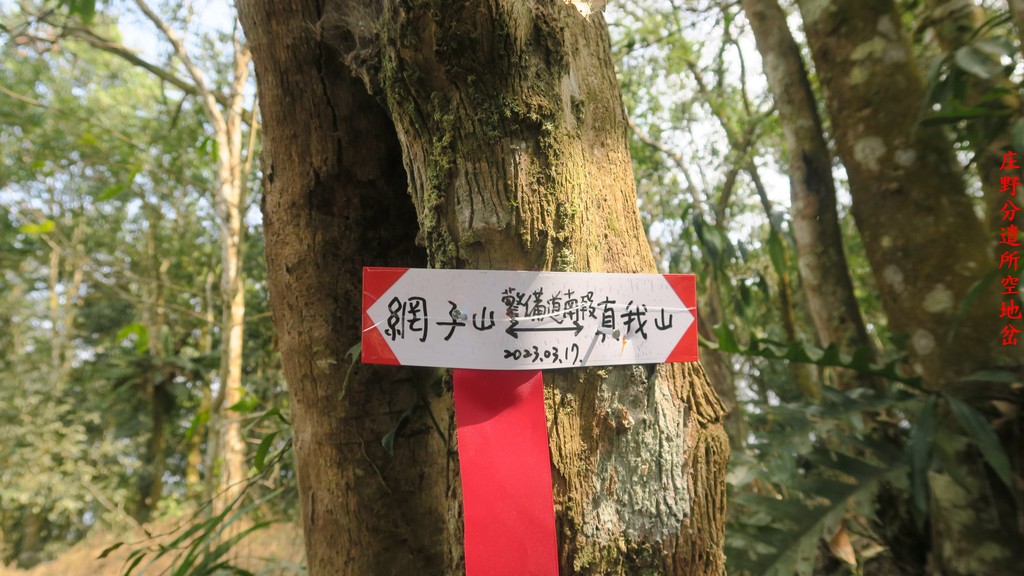 網子山 警備道南段 真我山
2023.03.17.
庄野分遺所空地岔